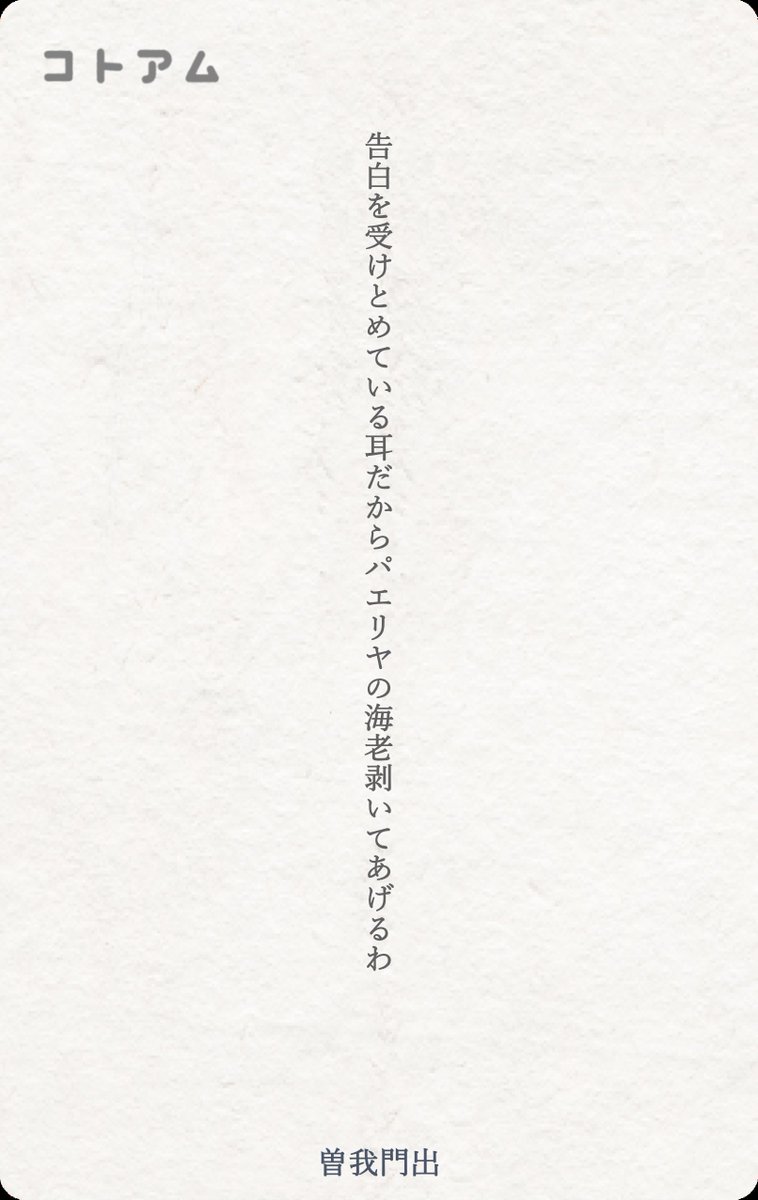 コトアム
告白を受けとめている耳だからパエリヤの海老剥いてあげるわ
曽我門出